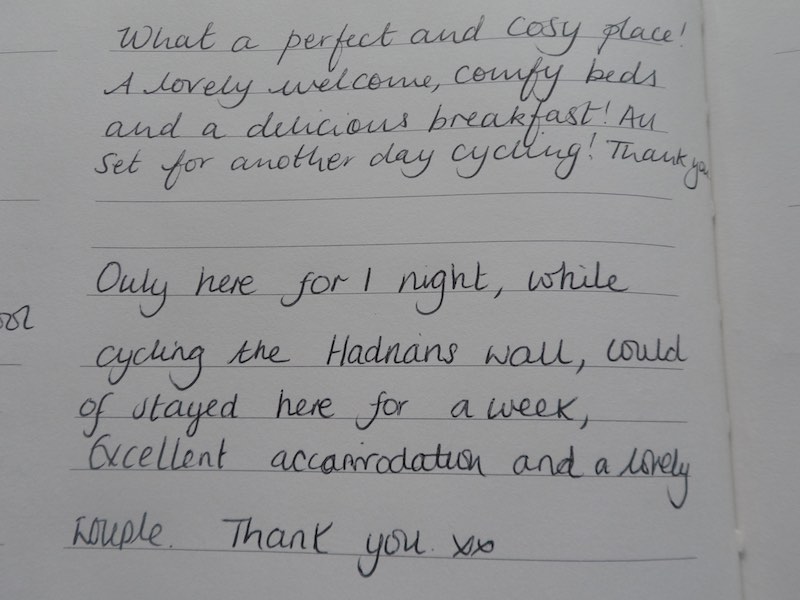 What a perfect and cosy place!
A lovely welcome, comfy beds
and a delicious breakfast! All
set for another day cycling! Thank you
Only here for 1 night, while
cycling the Hadrians wall, could
of stayed here for a week,
Excellent accamrodation and a lovely
couple. Thank you. xx